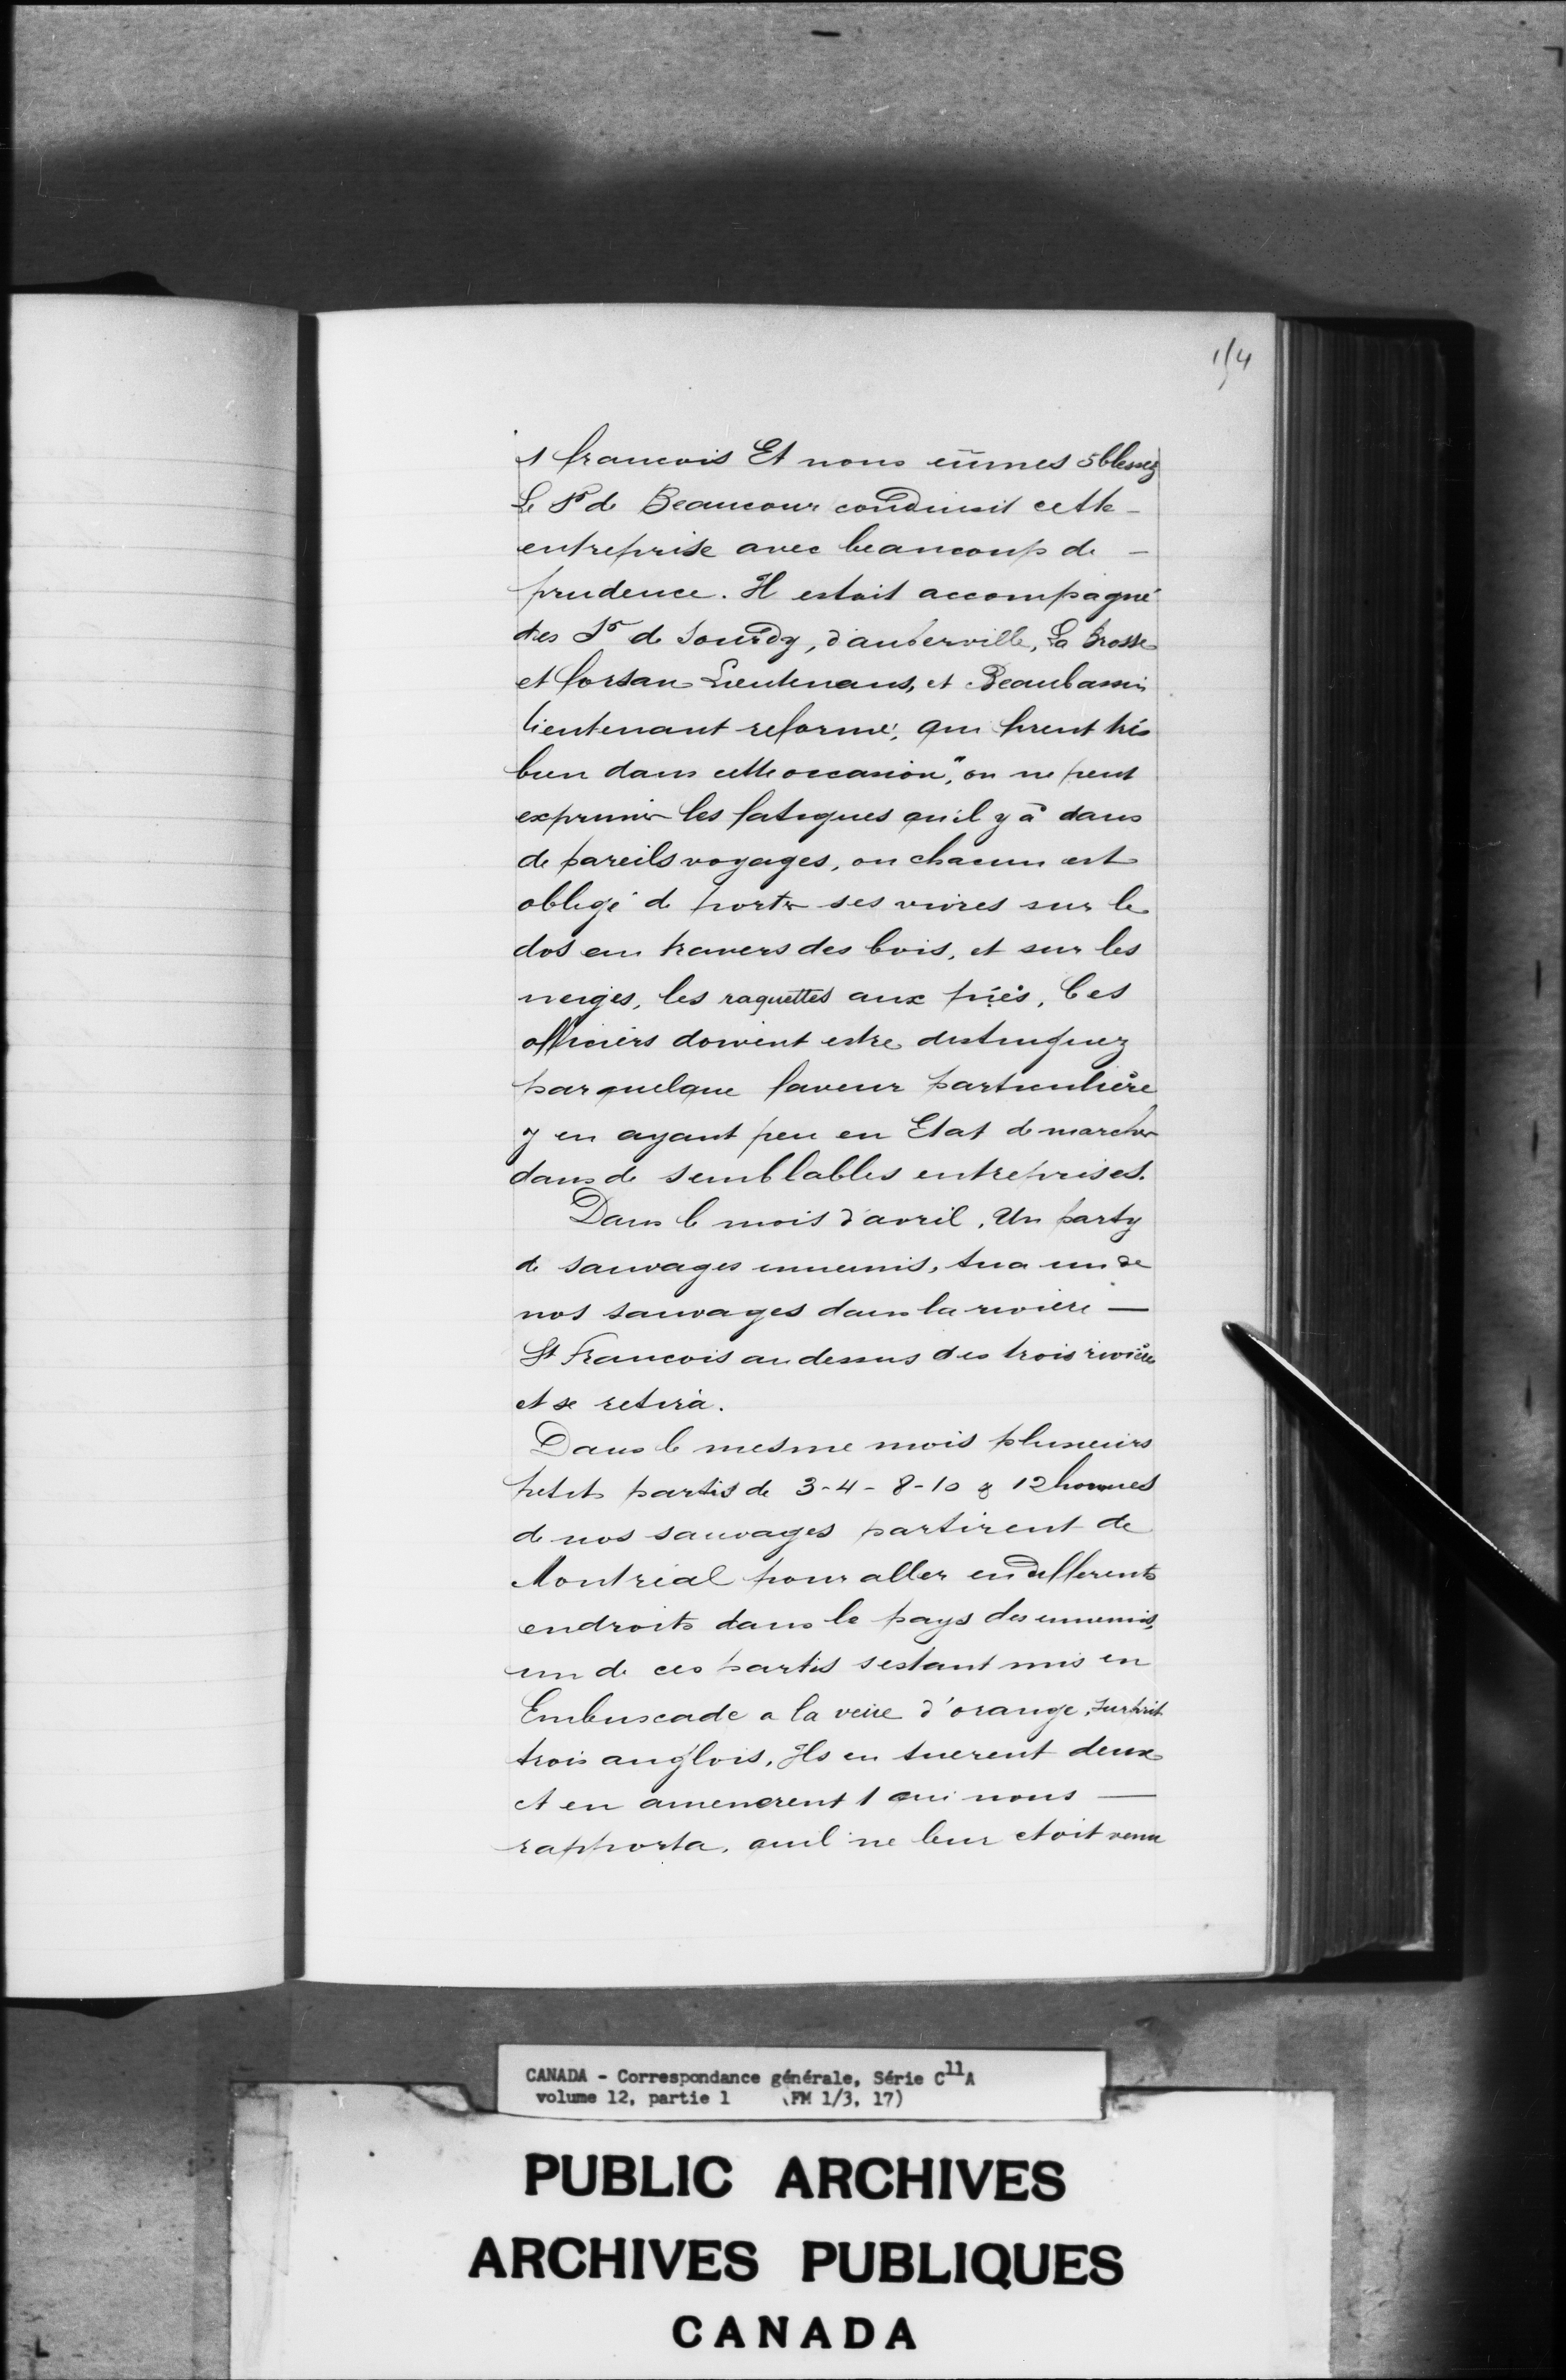 154
1 francois Et nous eûmes 5 blessez
Le Sr de Beaucour conduisit cette —
entreprise avec beaucoup de —
prudence. Il estoit accompagné
des Srs de Sourdy, d'auberville, La Brosse
et forsan Lieutenans, et Beaubassin
lieutenant reformé, qui firent très
bien dans cette occasion, on ne peut
exprimer les fatigues qu'il y a dans
de pareils voyages, ou chacun est
obligé de porter ses vivres sur le
dos au travers des bois, et sur les
neiges, les raquettes aux piés, Ces
officiers doivent estre distinguez
par quelque faveur particulière
y en ayant peu en Etat de marcher
dans de semblables entreprises.
Dans le mois d'avril, Un party
de sauvages ennemis, tua un de
nos sauvages dans la riviere —
St Francois au dessus des trois rivières
et se retira.
Dans le mesme mois plusieurs
petits partis de 3-4-8-10 & 12 hommes
de nos sauvages partirent de
Montréal pour aller en differents
endroits dans le pays des ennemis,
un de ces partis sestant mis en
Embuscade a la veüe d'orange, surprit
trois anglois, Ils en tuerent deux
et en amenerent 1 qui nous —
rapporta, quil ne leur etoit venu
CANADA - Correspondance générale, Série C11A
volume 12, partie 1 (FM 1/3, 17)
PUBLIC ARCHIVES
ARCHIVES PUBLIQUES
CANADA